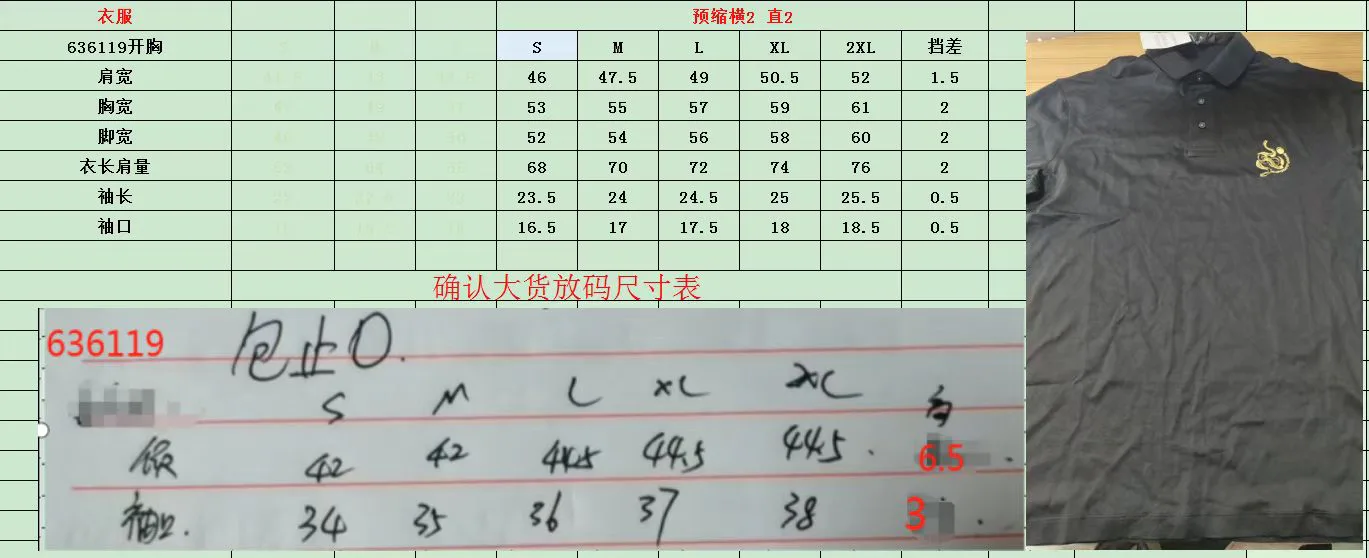 衣服 预缩横2 直2
636119开胸 S M L XL 2XL 挡差
肩宽 46 47.5 49 50.5 52 1.5
胸宽 53 55 57 59 61 2
脚宽 52 54 56 58 60 2
衣长肩量 68 70 72 74 76 2
袖长 23.5 24 24.5 25 25.5 0.5
袖口 16.5 17 17.5 18 18.5 0.5
确认大货放码尺寸表
636119 包止口.
S M L XL 2XL
42 42 44.5 44.5 44.5 . 6.5 .
袖口. 34 35 36 37 38 3 .